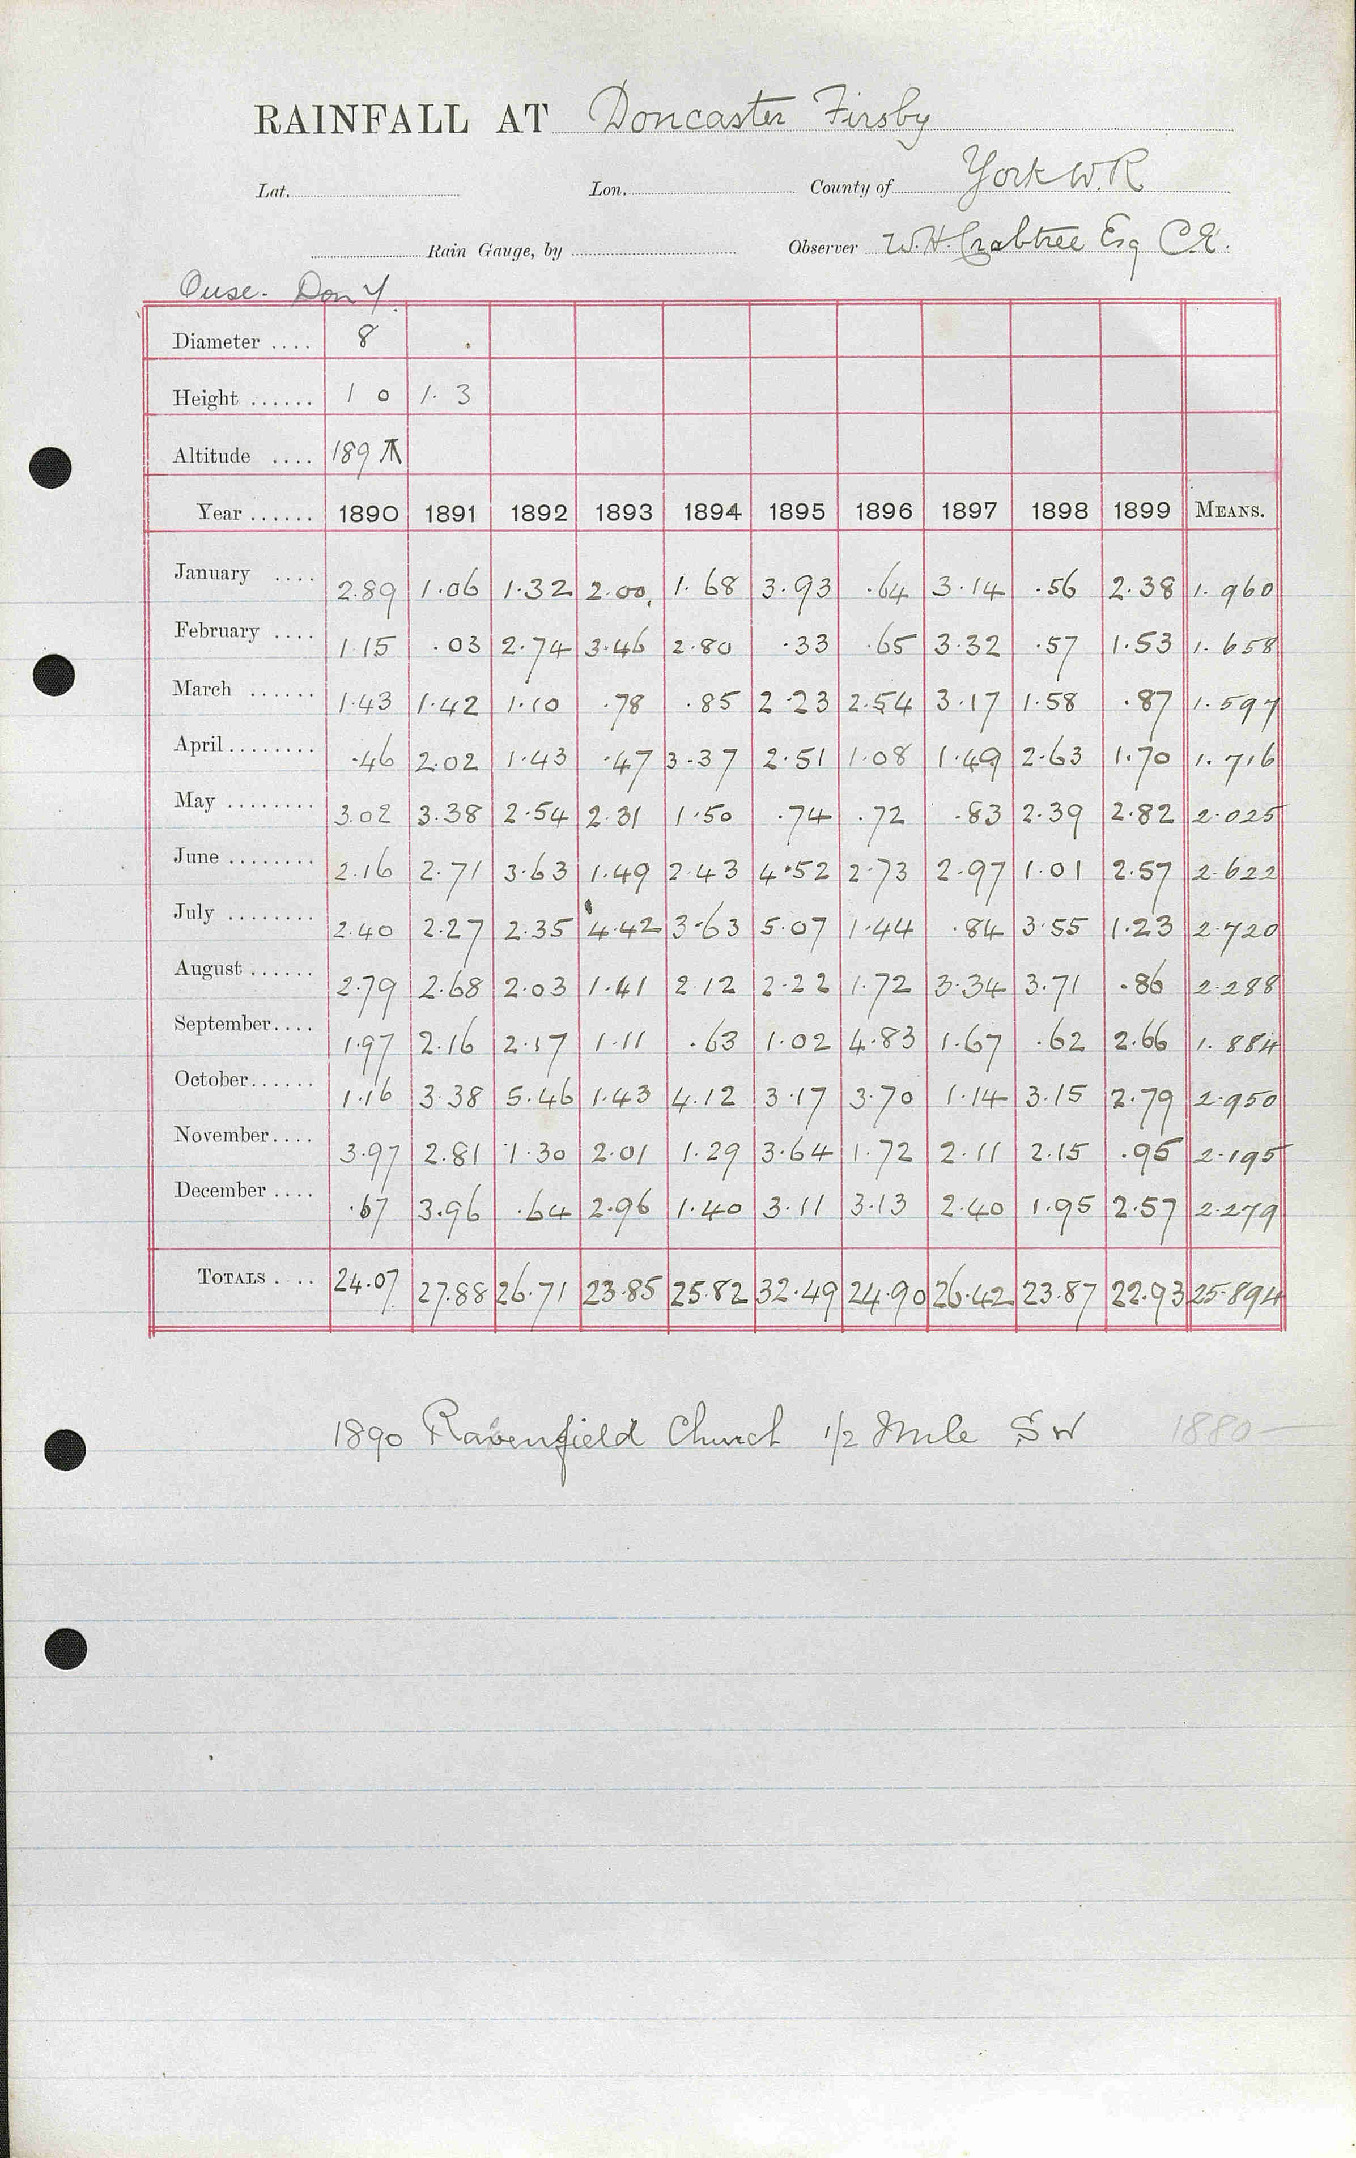 RAINFALL AT Doncaster Firsby
Lat. Lon. County of York W.R
Rain Gauge, by Observer W.H. Crabtree Esq C.E.
Ouse. Don Y.
Diameter .... 8
Height ...... 1 0 1. 3
Altitude .... 189
Year ...... 1890 1891 1892 1893 1894 1895 1896 1897 1898 1899 MEANS.
January .... 2.89 1.06 1.32 2.00 1.68 3.93 .64 3.14 .56 2.38 1.960
February .... 1.15 .03 2.74 3.46 2.80 .33 .65 3.32 .57 1.53 1.658
March ...... 1.43 1.42 1.10 .78 .85 2.23 2.54 3.17 1.58 .87 1.597
April ........ .46 2.02 1.43 .47 3.37 2.51 1.08 1.49 2.63 1.70 1.716
May ........ 3.02 3.38 2.54 2.31 1.50 .74 .72 .83 2.39 2.82 2.025
June ........ 2.16 2.71 3.63 1.49 2.43 4.52 2.73 2.97 1.01 2.57 2.622
July ........ 2.40 2.27 2.35 4.42 3.63 5.07 1.44 .84 3.55 1.23 2.720
August ...... 2.79 2.68 2.03 1.41 2.12 2.22 1.72 3.34 3.71 .86 2.288
September .... 1.97 2.16 2.17 1.11 .63 1.02 4.83 1.67 .62 2.66 1.884
October ...... 1.16 3.38 5.46 1.43 4.12 3.17 3.70 1.14 3.15 2.79 2.950
November .... 3.97 2.81 1.30 2.01 1.29 3.64 1.72 2.11 2.15 .95 2.195
December .... .67 3.96 .64 2.96 1.40 3.11 3.13 2.40 1.95 2.57 2.279
TOTALS .... 24.07 27.88 26.71 23.85 25.82 32.49 24.90 26.42 23.87 22.93 25.894
1890 Ravenfield Church 1/2 Mile SW 1880-